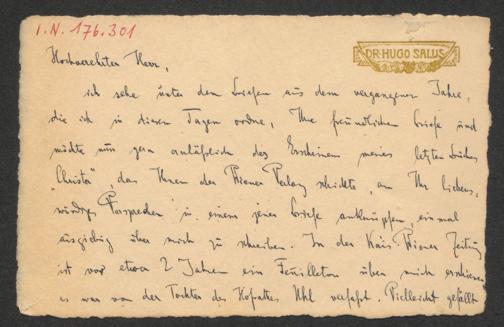 I.N. 176.301
DR. HUGO SALUS
Hochverehrter Herr,
ich sehe unter den Briefen aus dem vergangenen Jahre,
die ich in diesen Tagen ordne, Ihre freundlichen Briefe und
möchte nun gern anläßlich des Erscheinens meines letzten Buches
„Christa", das Ihnen der Wiener Verlag schickte, an Ihr liebens-
würdiges Versprechen in einem jener Briefe anknüpfen einmal
ausgiebig über mich zu schreiben. In der Kais. Wiener Zeitung
ist vor etwa 2 Jahren ein Feuilleton über mich erschienen
es war von der Tochter des Hofrathes Uhl verfaßt. Vielleicht gefällt